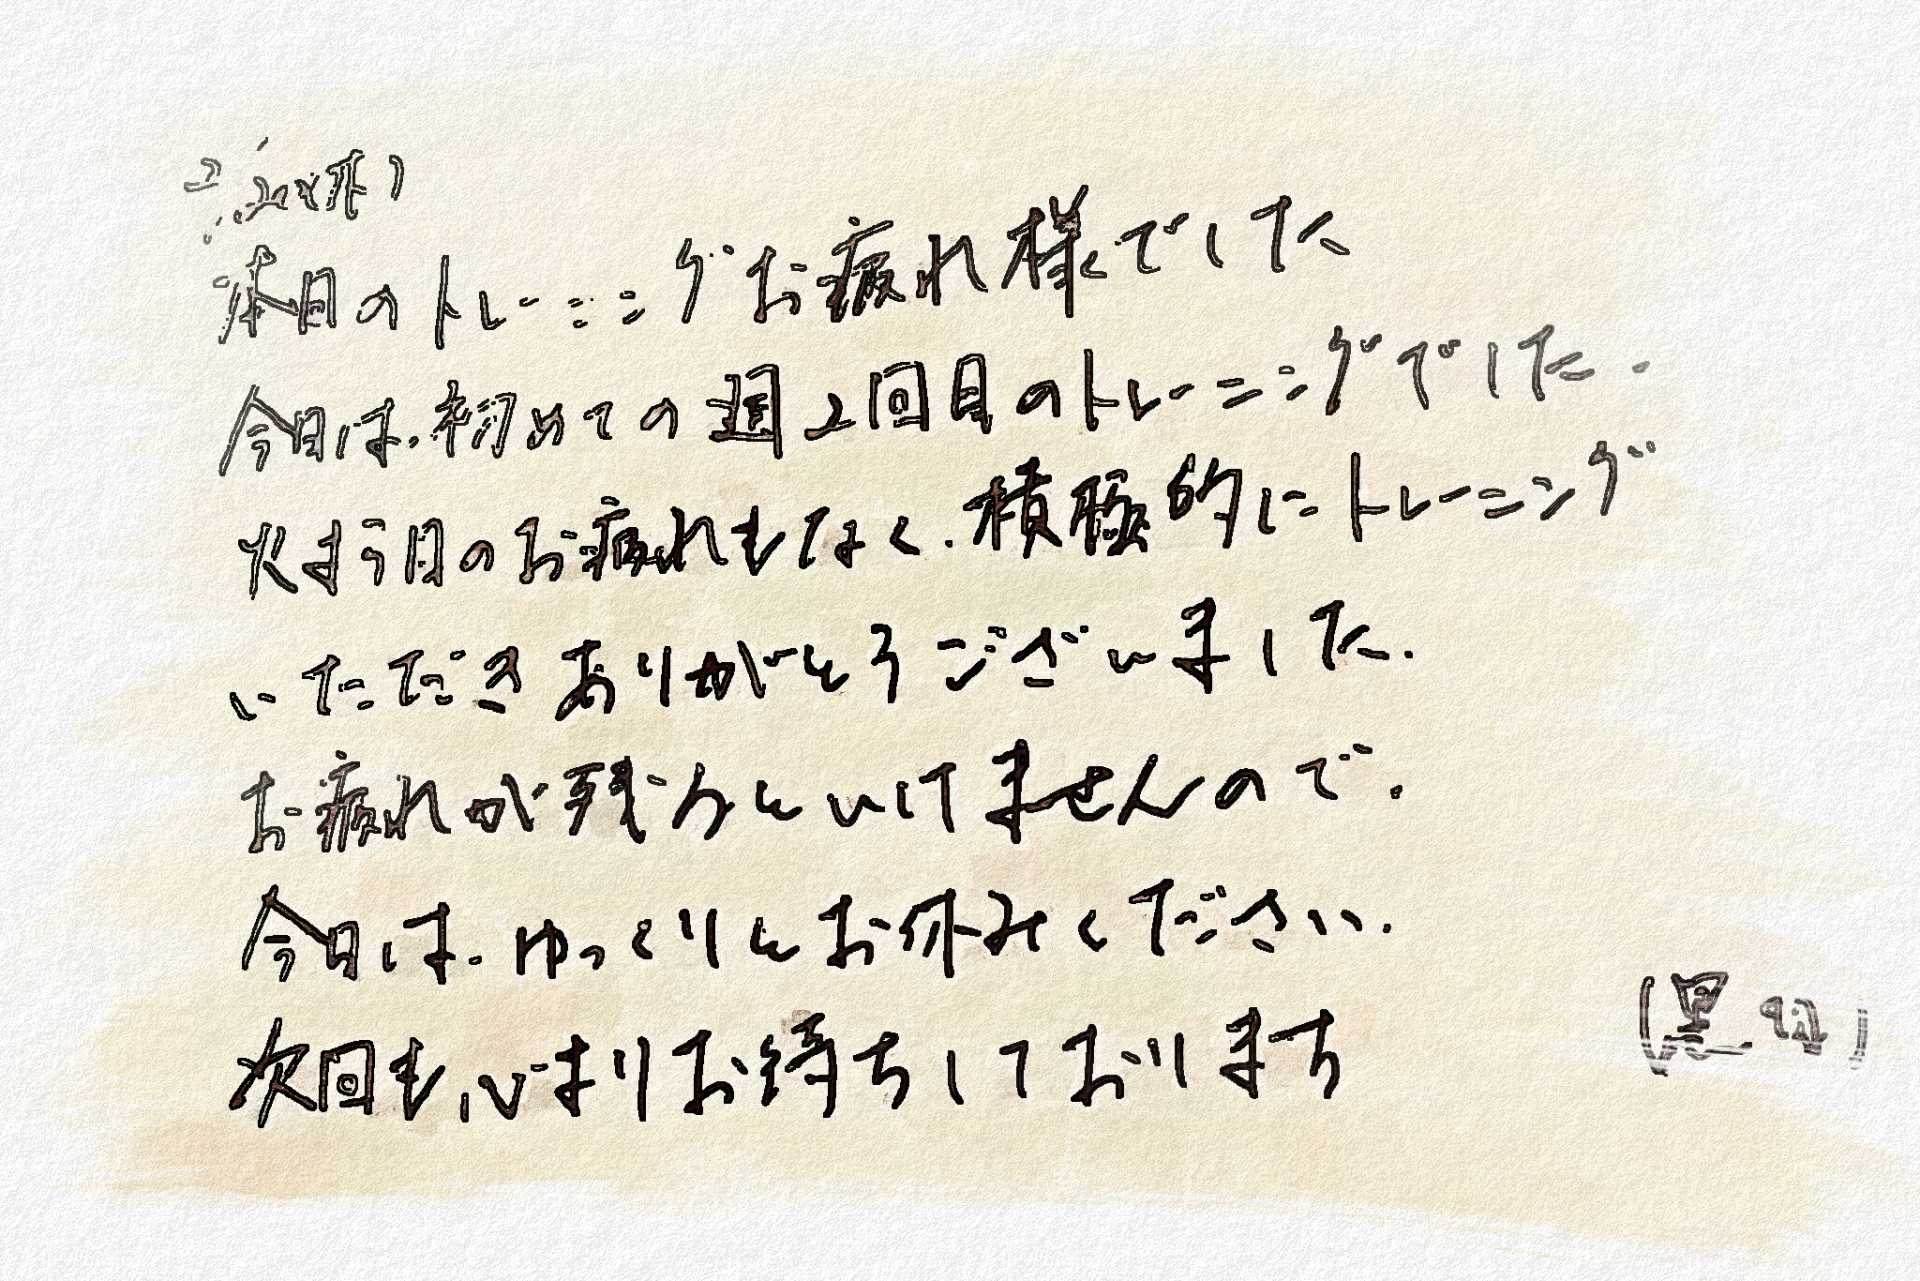 本日のトレーニングお疲れ様でした
今日は、初めての週2回目のトレーニングでした。
火よう日のお疲れもなく、積極的にトレーニング
いただきありがとうございました。
お疲れが残るといけませんので、
今日は、ゆっくりとお休みください。
次回も、お待ちしております